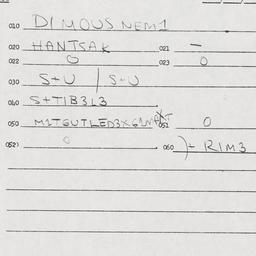 010 DIMOUS NEM1
020 HANTSAK 021 —
022 0 023 0
030 S+U / S+U
040 S+TIB3L3
050 051 0
052) 0 060 )- RIM3